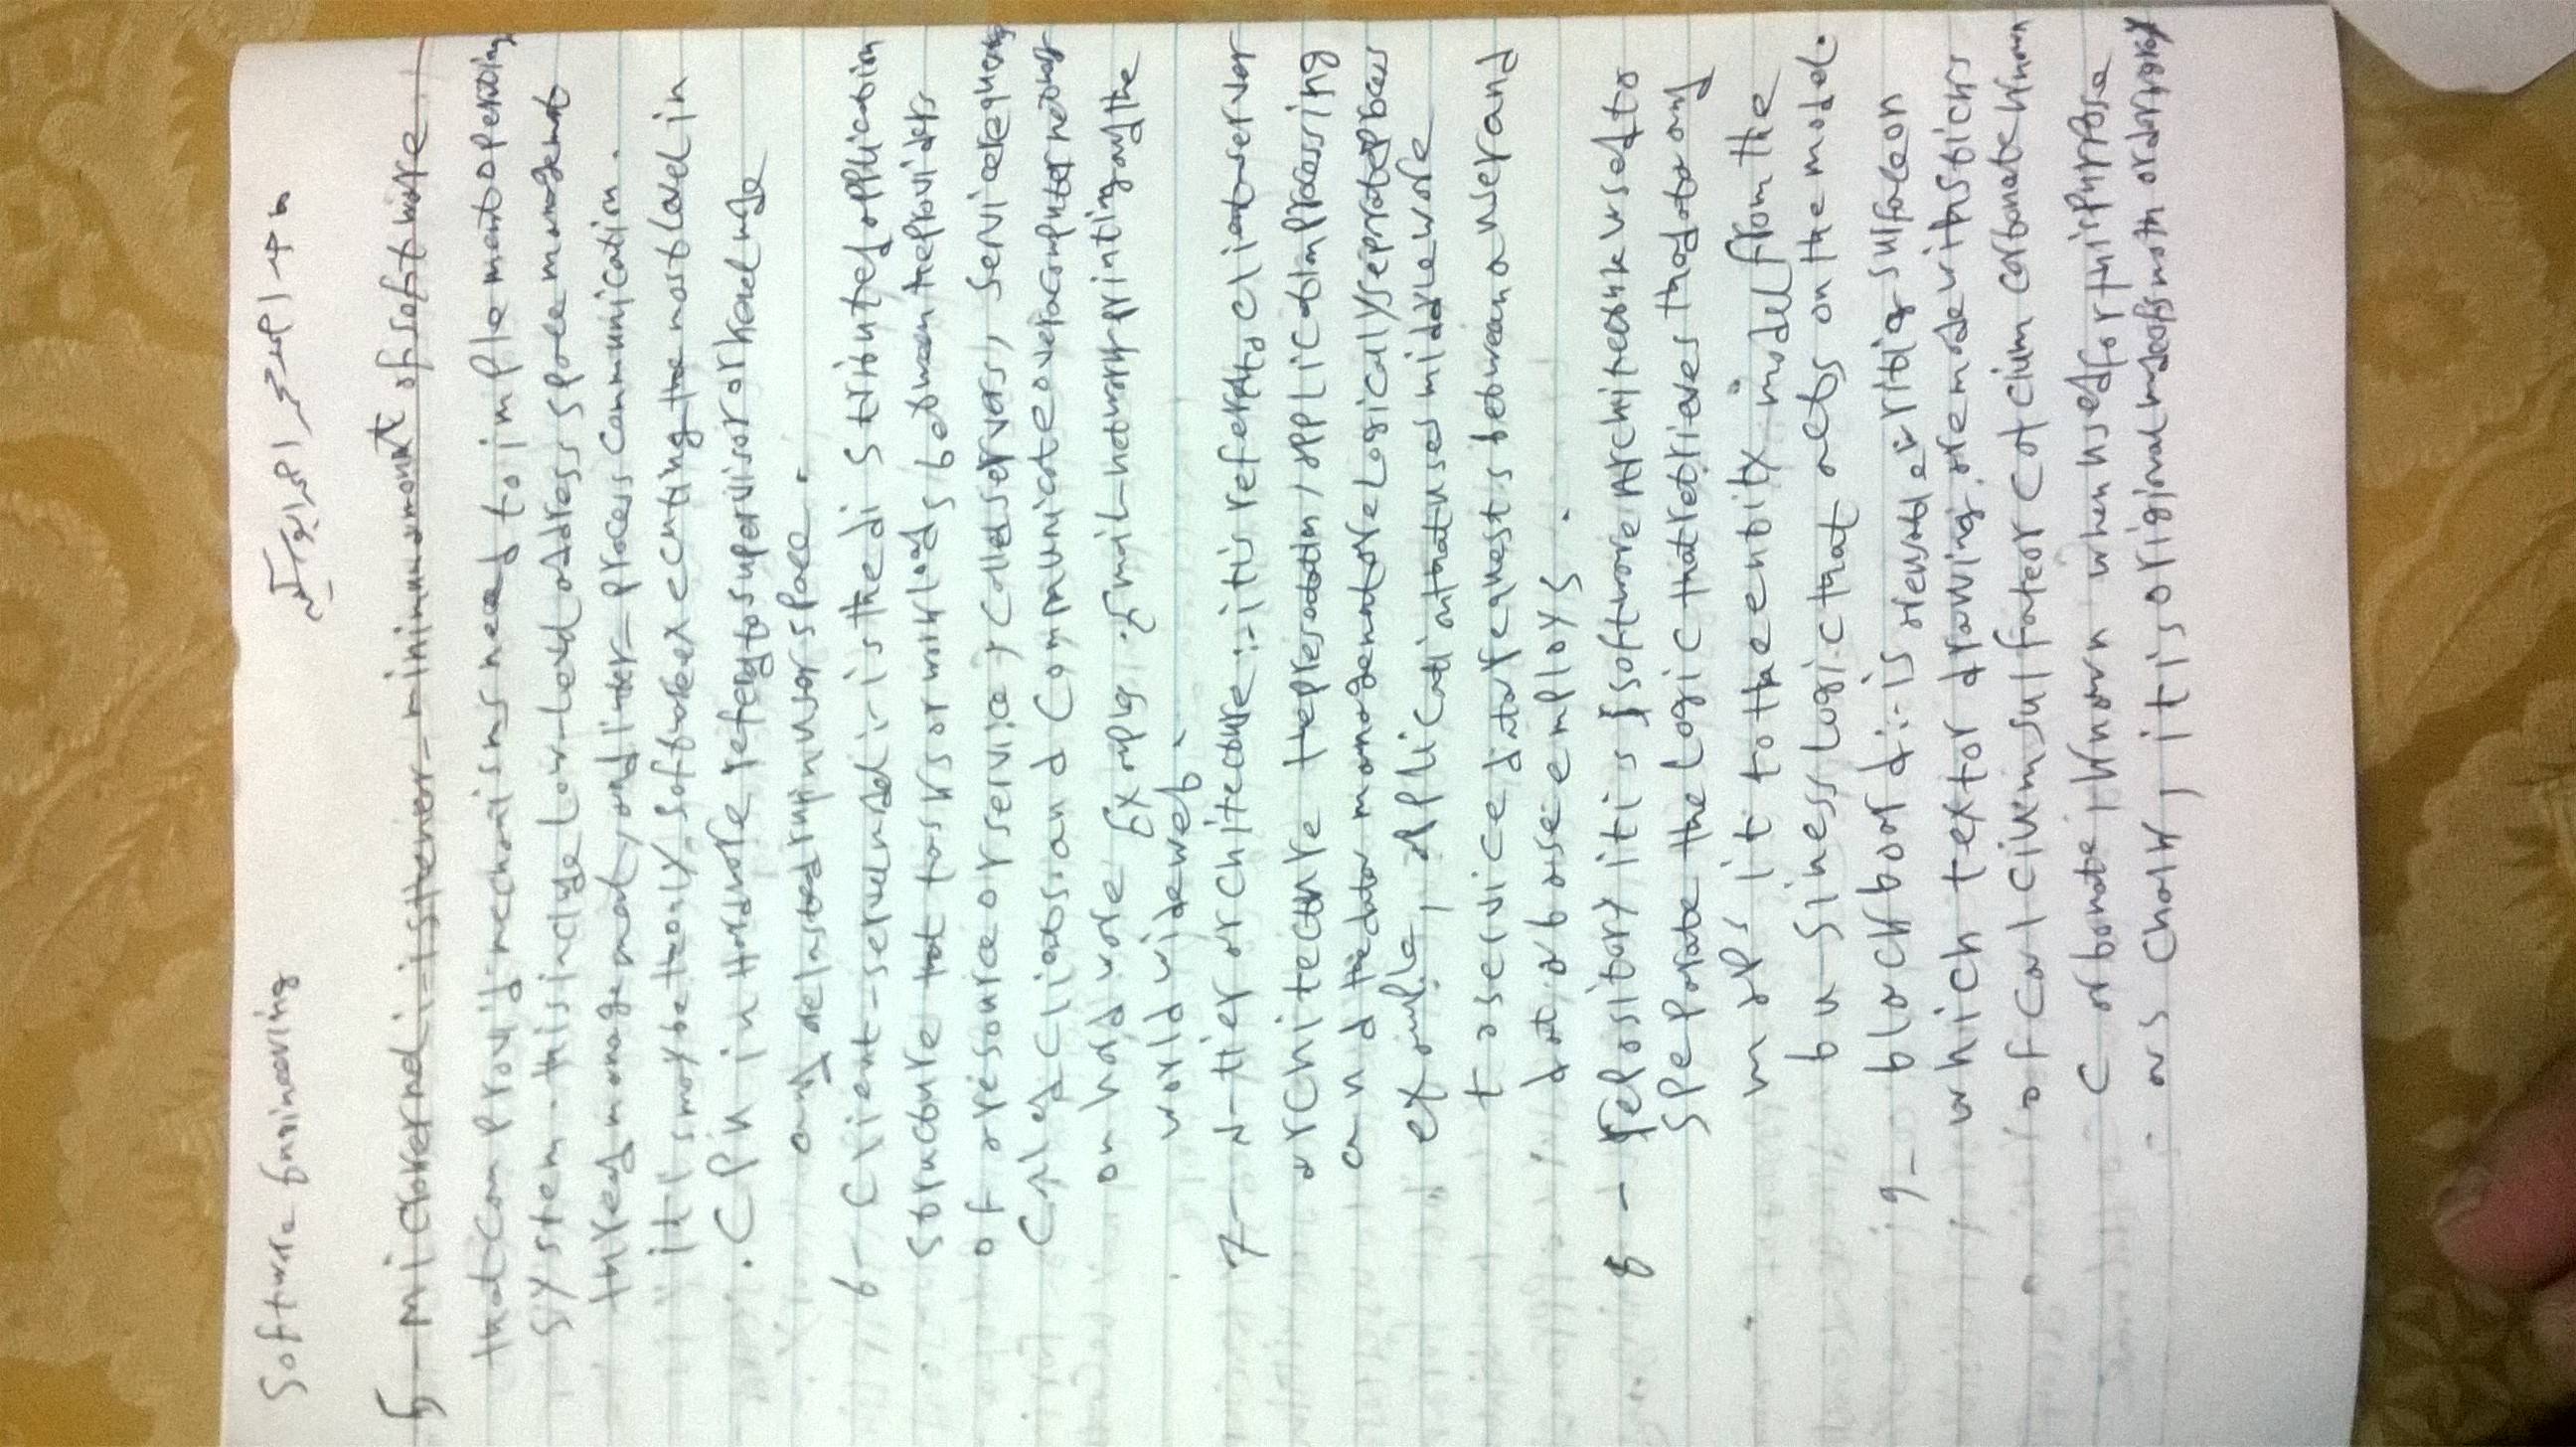 Software Engineering
5 - Microkernel :- is the near- minimum amount of software
that can provid mechanisms need to implement operating
system. this include low-level address space managemat
thread managemat, and inter- process communication.
it is may be the only software executing the most level in
. CPU in Hardware
and run in user space .
6 - Client-server model :- is the distributed application
structure that tasks or workloads between the providers
of a resource or service, called servers,
called clients. and communicate over a computer network
on hard ware Email-network printing and the
world wide web.
7 - N-tier architecture :- it is refers to client-server
architecture the presentation, application processing
and the data are logically separate process
example, application that uses middleware
to service data requests between a user and
data base employs .
8 - repository it is software Architecture used to
speparate the logic that retrieves the data and
maps it to the entity model from the
bu siness logic that acts on the model.
9 - blackboard :- is a reusable writing surface on
which text or drawing are made with sticks
of calcium sulfate or calcium carbonate known
carbonate, known when used for this purpose
as chalk, it is original